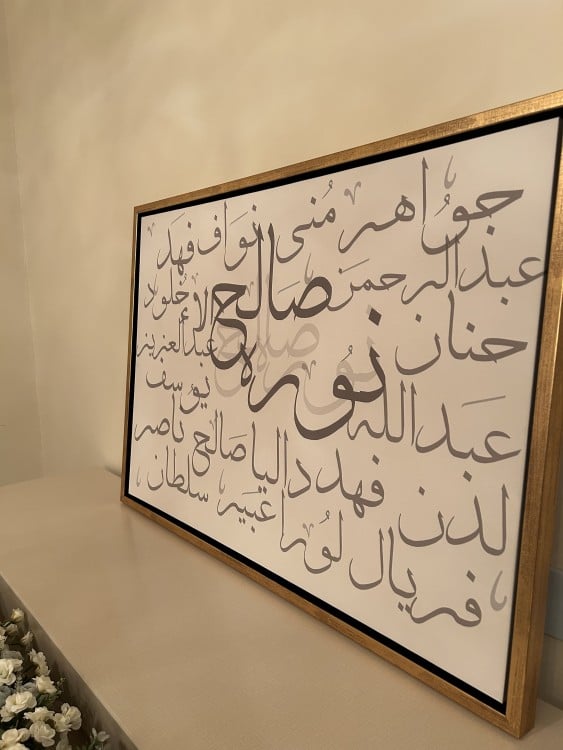 جواهر مُنى نواف فهد
عبدالرحمن صالح خلود
حنان نوره عبدالعزيز
عبدالله يوسف
لدن فهد داليا صالح ناصر
فريال لورا عبير سلطان